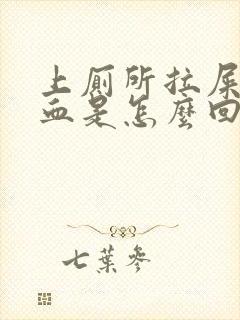 上厕所拉屎
血是怎麼回
七葉參